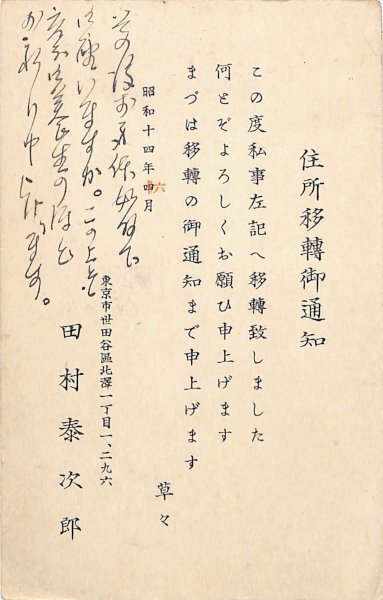 住所移轉御通知
この度私事左記へ移轉致しました
何とぞよろしくお願ひ申上げます
まづは移轉の御通知まで申上げます
草々
昭和十四年四月
六
東京市世田谷區北澤一丁目一、二九六
田村泰次郎
その後お身体如何で
ございますか。この上とも
御養生のほど
お祈り申上げます。